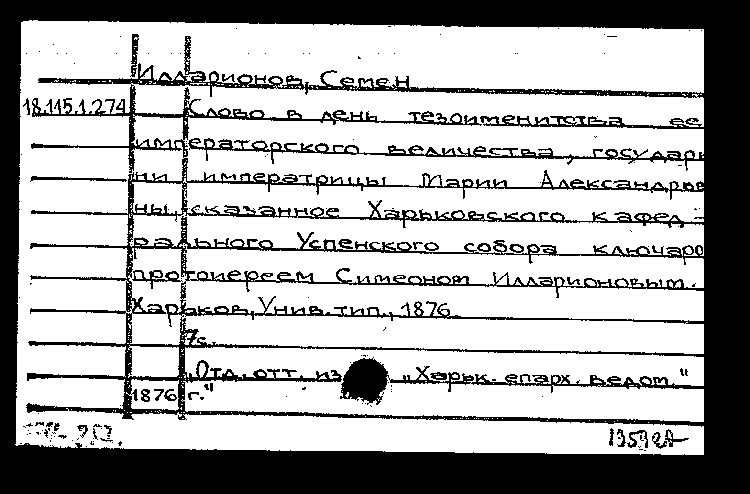 Илларионов, Семен
18.115.1.274 Слово в день тезоименитства ее
императорского величества, государы
ни императрицы Марии Александров
ны, сказанное Харьковского кафед-
рального Успенского собора ключаро
протоиереем Симеоном Илларионовым.
Харьков, Унив. тип., 1876.
7с.
„Отд. отт. из „Харьк. епарх. ведом."
1876 г."
13592А